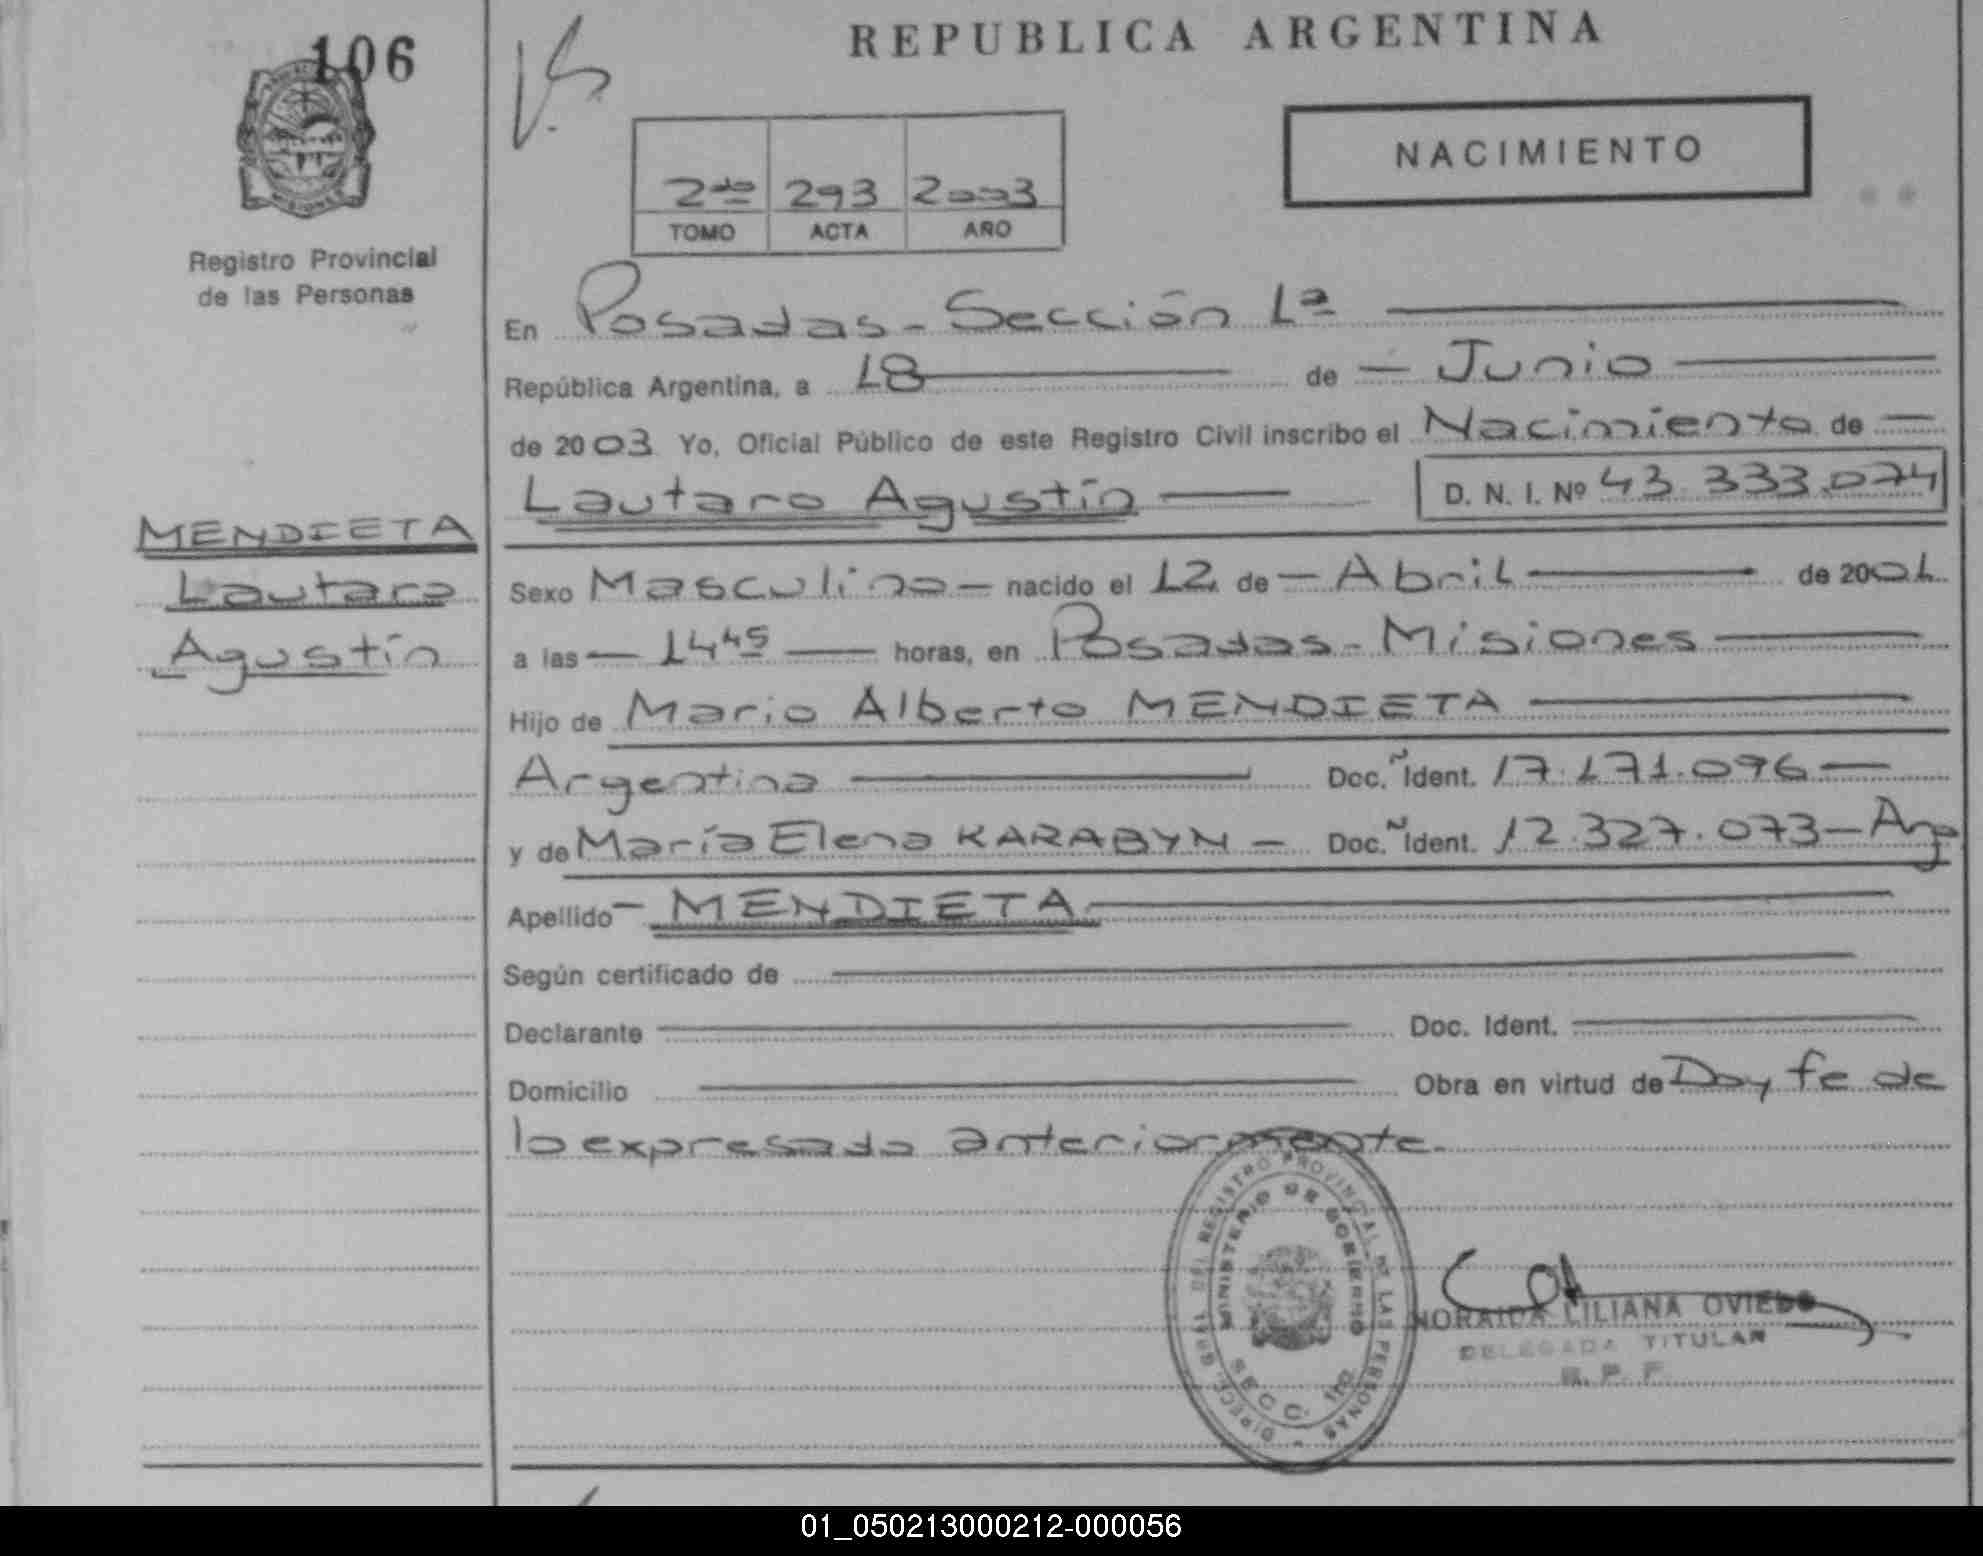 106
REPUBLICA ARGENTINA
NACIMIENTO
2do 293 2003
TOMO ACTA AÑO
Registro Provincial
de las Personas
En Posadas - Sección 1ª
República Argentina, a 18 de - Junio
de 2003 Yo, Oficial Público de este Registro Civil inscribo el Nacimiento de
Lautaro Agustín D. N. I. Nº 43.333.074
MENDIETA
Lautaro
Agustín
Sexo Masculino - nacido el 12 de - Abril de 2001
a las - 14 45 horas, en Posadas - Misiones
Hijo de Mario Alberto MENDIETA
Argentina Doc. Ident. 17.171.096
y de María Elena KARABYN - Doc. Ident. 12.327.073 - Arg
Apellido - MENDIETA
Según certificado de
Declarante Doc. Ident.
Domicilio Obra en virtud de Doy fe de
lo expresado anteriormente.
DIRECC. GRAL DEL REGISTRO PROVINCIAL DE LAS PERSONAS
MINISTERIO DE GOBIERNO
SECC. 1ra.
NORAIDA LILIANA OVIEDO
DELEGADA TITULAR
R. P. P.
MISIONES
01_050213000212-000056